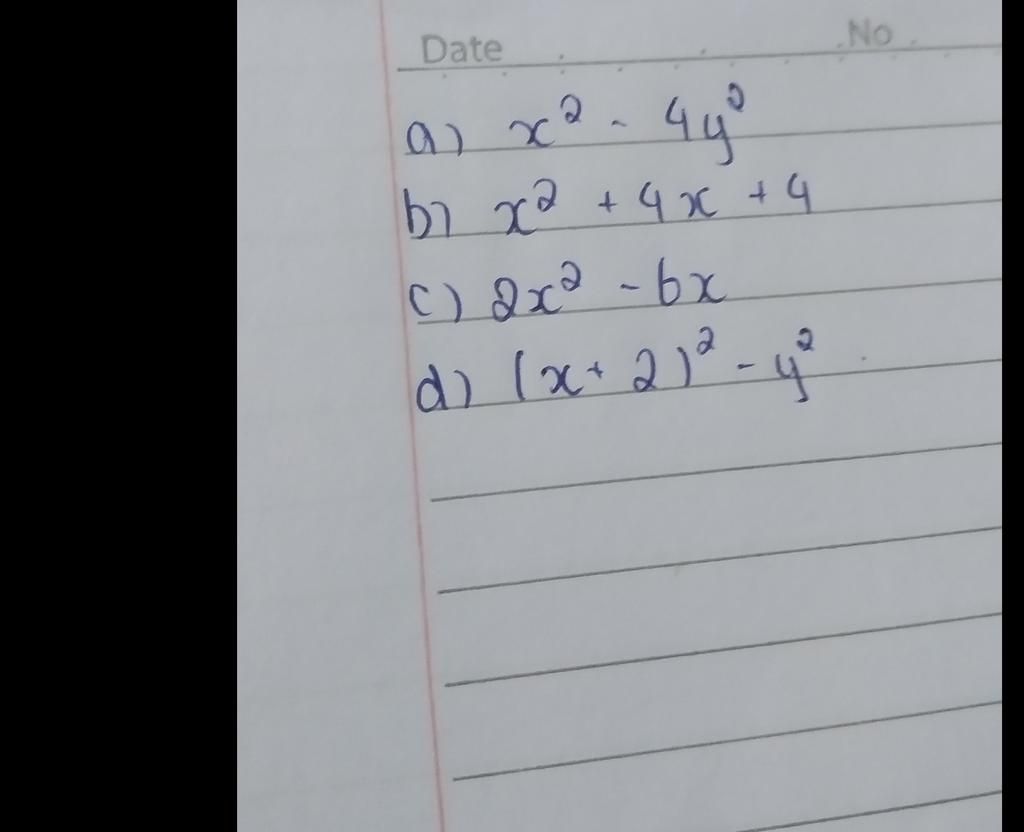 Date No
a) x² - 4y²
b) x² + 4x + 4
c) 2x² - 6x
d) (x + 2)² - y²